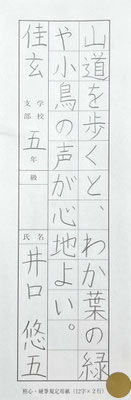 山道を歩くと、わか葉の緑
や小鳥の声が心地よい。
佳玄
学校
支部
五年級
氏名
井口悠五
照心・硬筆規定用紙(12字×2行)